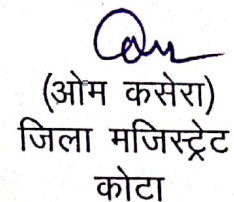 (ओम कसेरा)
जिला मजिस्ट्रेट
कोटा